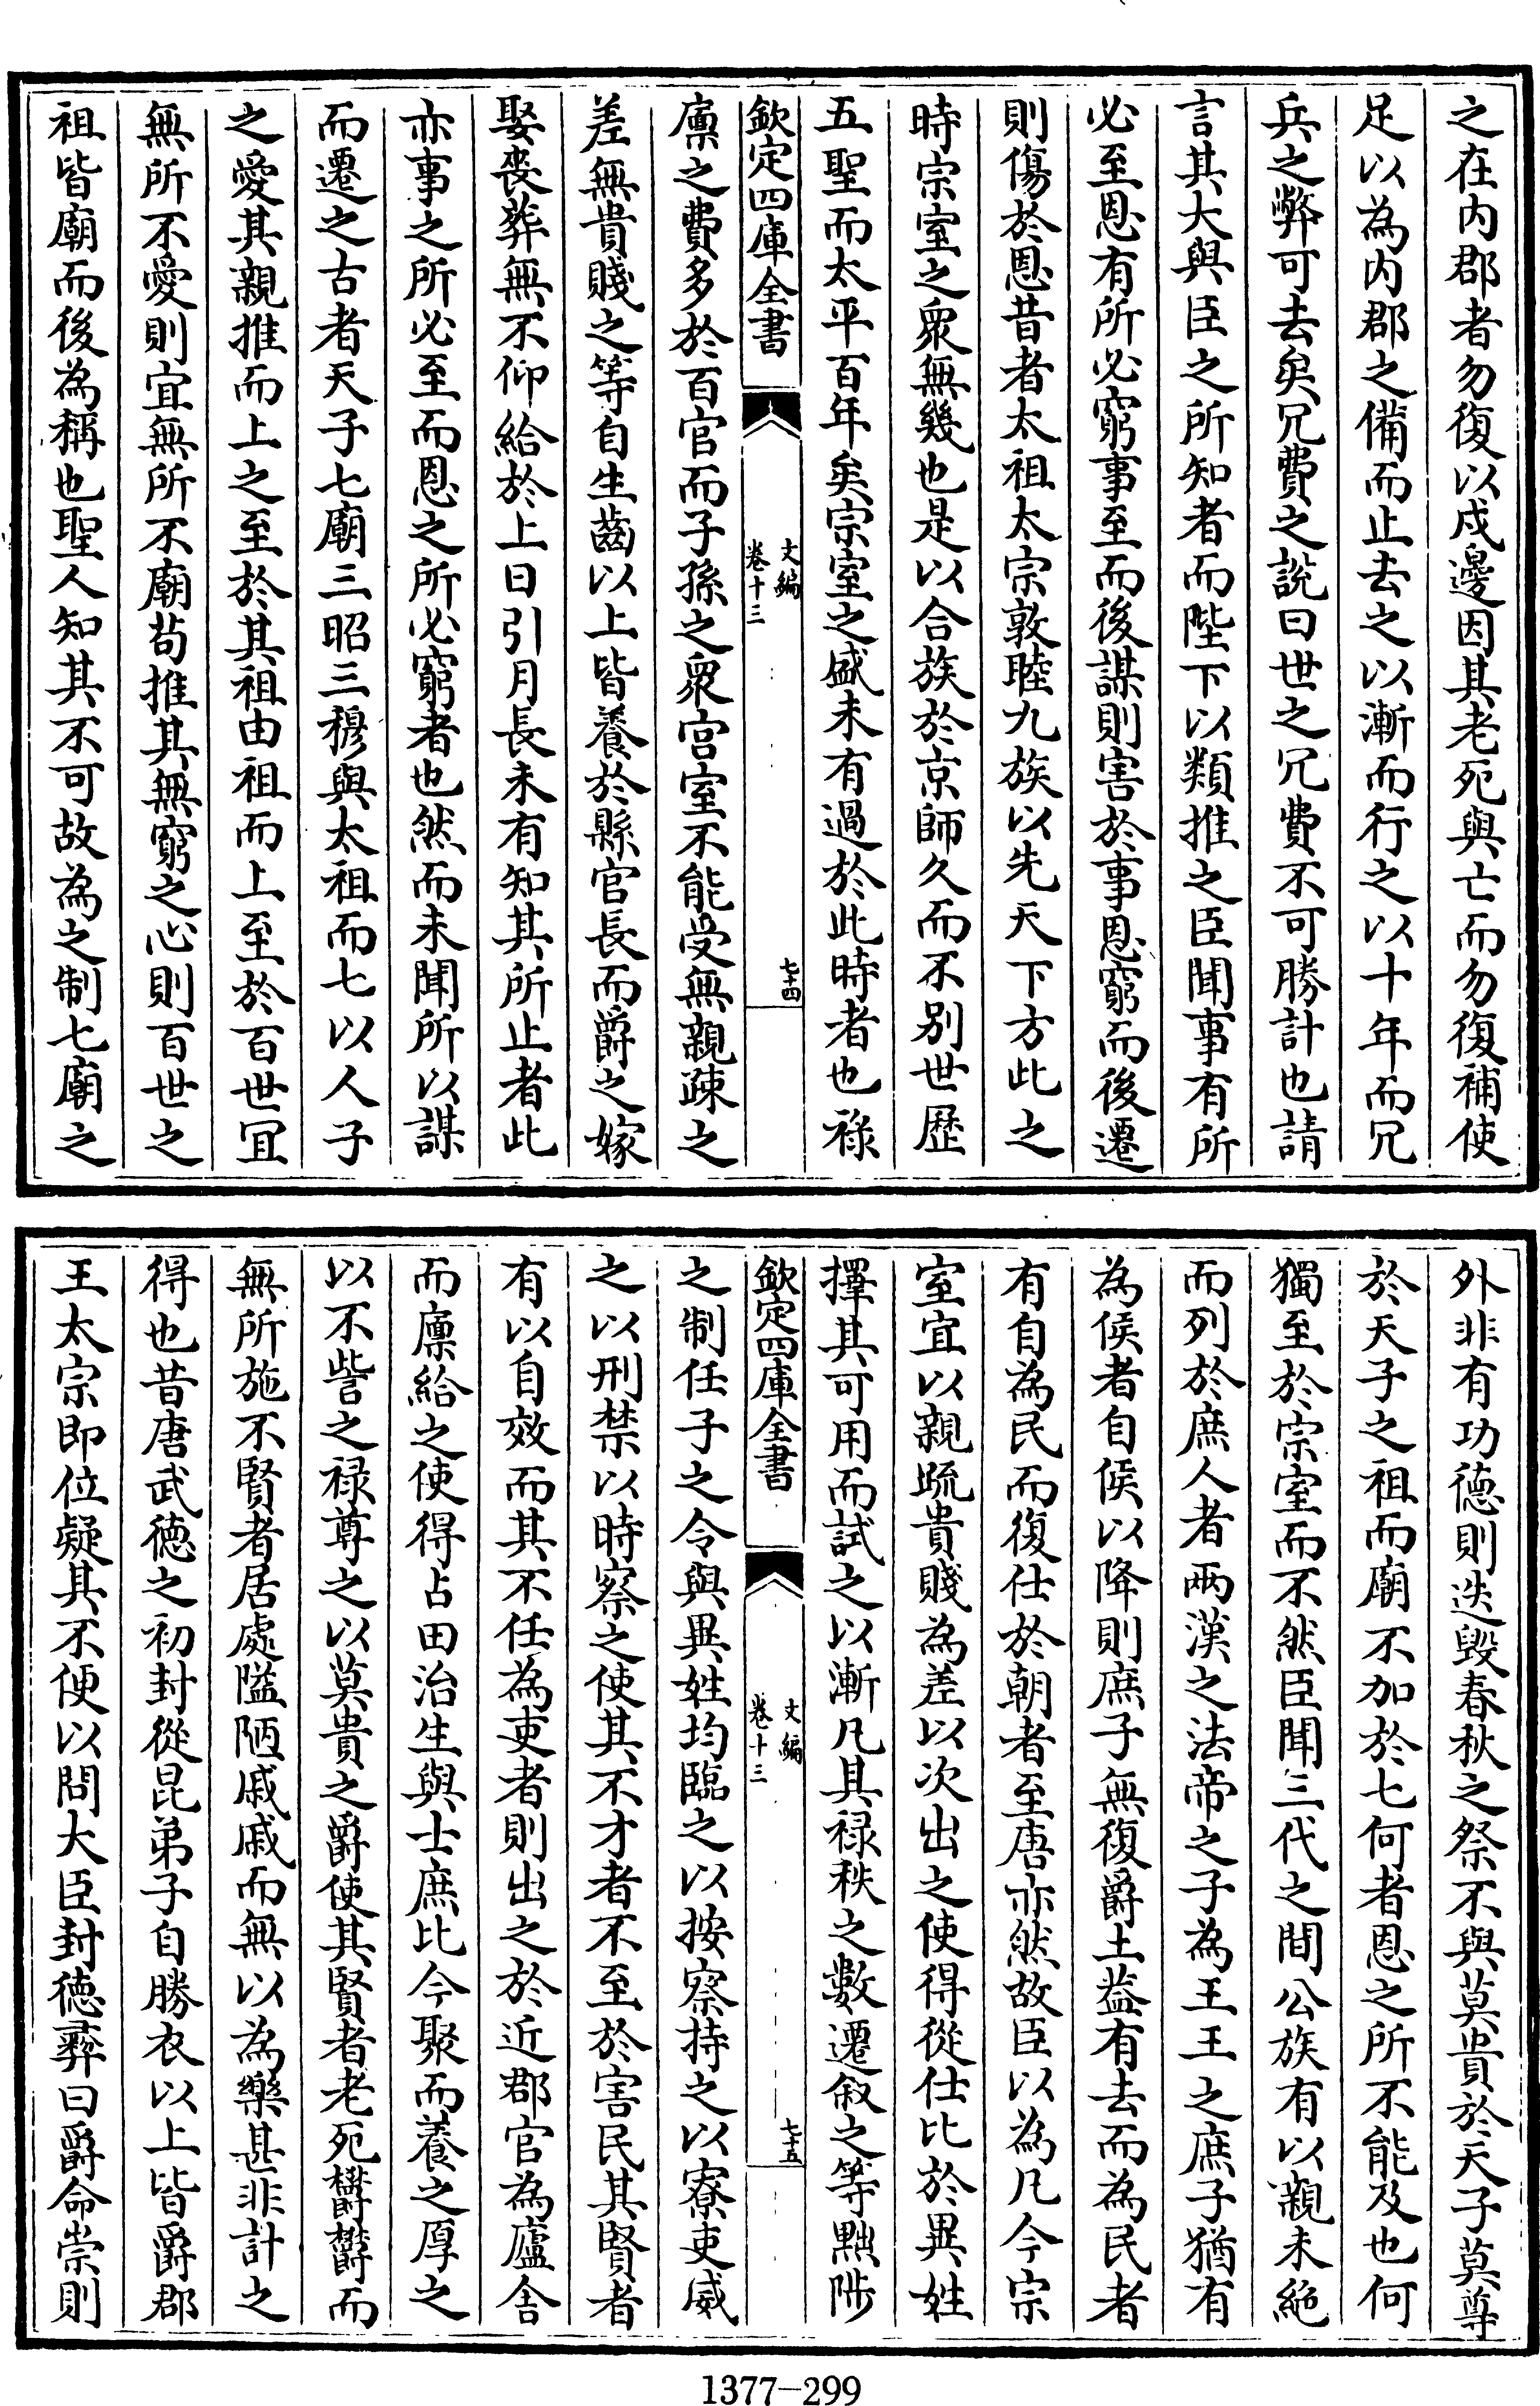 之在内郡者勿復以戍邊因其老死與亡而勿復補使
足以為内郡之備而止去之以漸而行之以十年而冗
兵之弊可去矣冗費之說曰世之冗費不可勝計也請
言其大與臣之所知者而陛下以類推之臣聞事有所
必至恩有所必窮事至而後謀則害於事恩窮而後遷
則傷於恩昔者太祖太宗敦睦九族以先天下方此之
時宗室之衆無幾也是以合族於京師久而不别世歷
五聖而太平百年矣宗室之盛未有過於此時者也祿
欽定四庫全書
文編
卷十三
七十四
廪之費多於百官而子孫之衆宫室不能受無親疎之
差無貴賤之等自生齒以上皆養於縣官長而爵之嫁
娶喪葬無不仰給於上日引月長未有知其所止者此
亦事之所必至而恩之所必窮者也然而未聞所以謀
而遷之古者天子七廟三昭三穆與太祖而七以人子
之愛其親推而上之至於其祖由祖而上至於百世冝
無所不愛則宜無所不廟苟推其無窮之心則百世之
祖皆廟而後為稱也聖人知其不可故為之制七廟之
外非有功德則迭毁春秋之祭不與莫貴於天子莫尊
於天子之祖而廟不加於七何者恩之所不能及也何
獨至於宗室而不然臣聞三代之間公族有以親未絶
而列於庶人者两漢之法帝之子為王王之庶子猶有
為侯者自侯以降則庶子無復爵土葢有去而為民者
有自為民而復仕於朝者至唐亦然故臣以為凡今宗
室宜以親疏貴賤為差以次出之使得從仕比於異姓
擇其可用而試之以漸凡其禄秩之數遷叙之等黜陟
欽定四庫全書
文編
卷十三
七十五
之制任子之令與異姓均臨之以按察持之以寮吏威
之以刑禁以時察之使其不才者不至於害民其賢者
有以自效而其不任為吏者則出之於近郡官為廬舍
而廪給之使得占田治生與士庶比今聚而養之厚之
以不訾之禄尊之以莫貴之爵使其賢者老死欝欝而
無所施不賢者居處隘陋戚戚而無以為樂甚非計之
得也昔唐武徳之初封從昆弟子自勝衣以上皆爵郡
王太宗即位疑其不便以問大臣封徳彝曰爵命崇則
1377-299